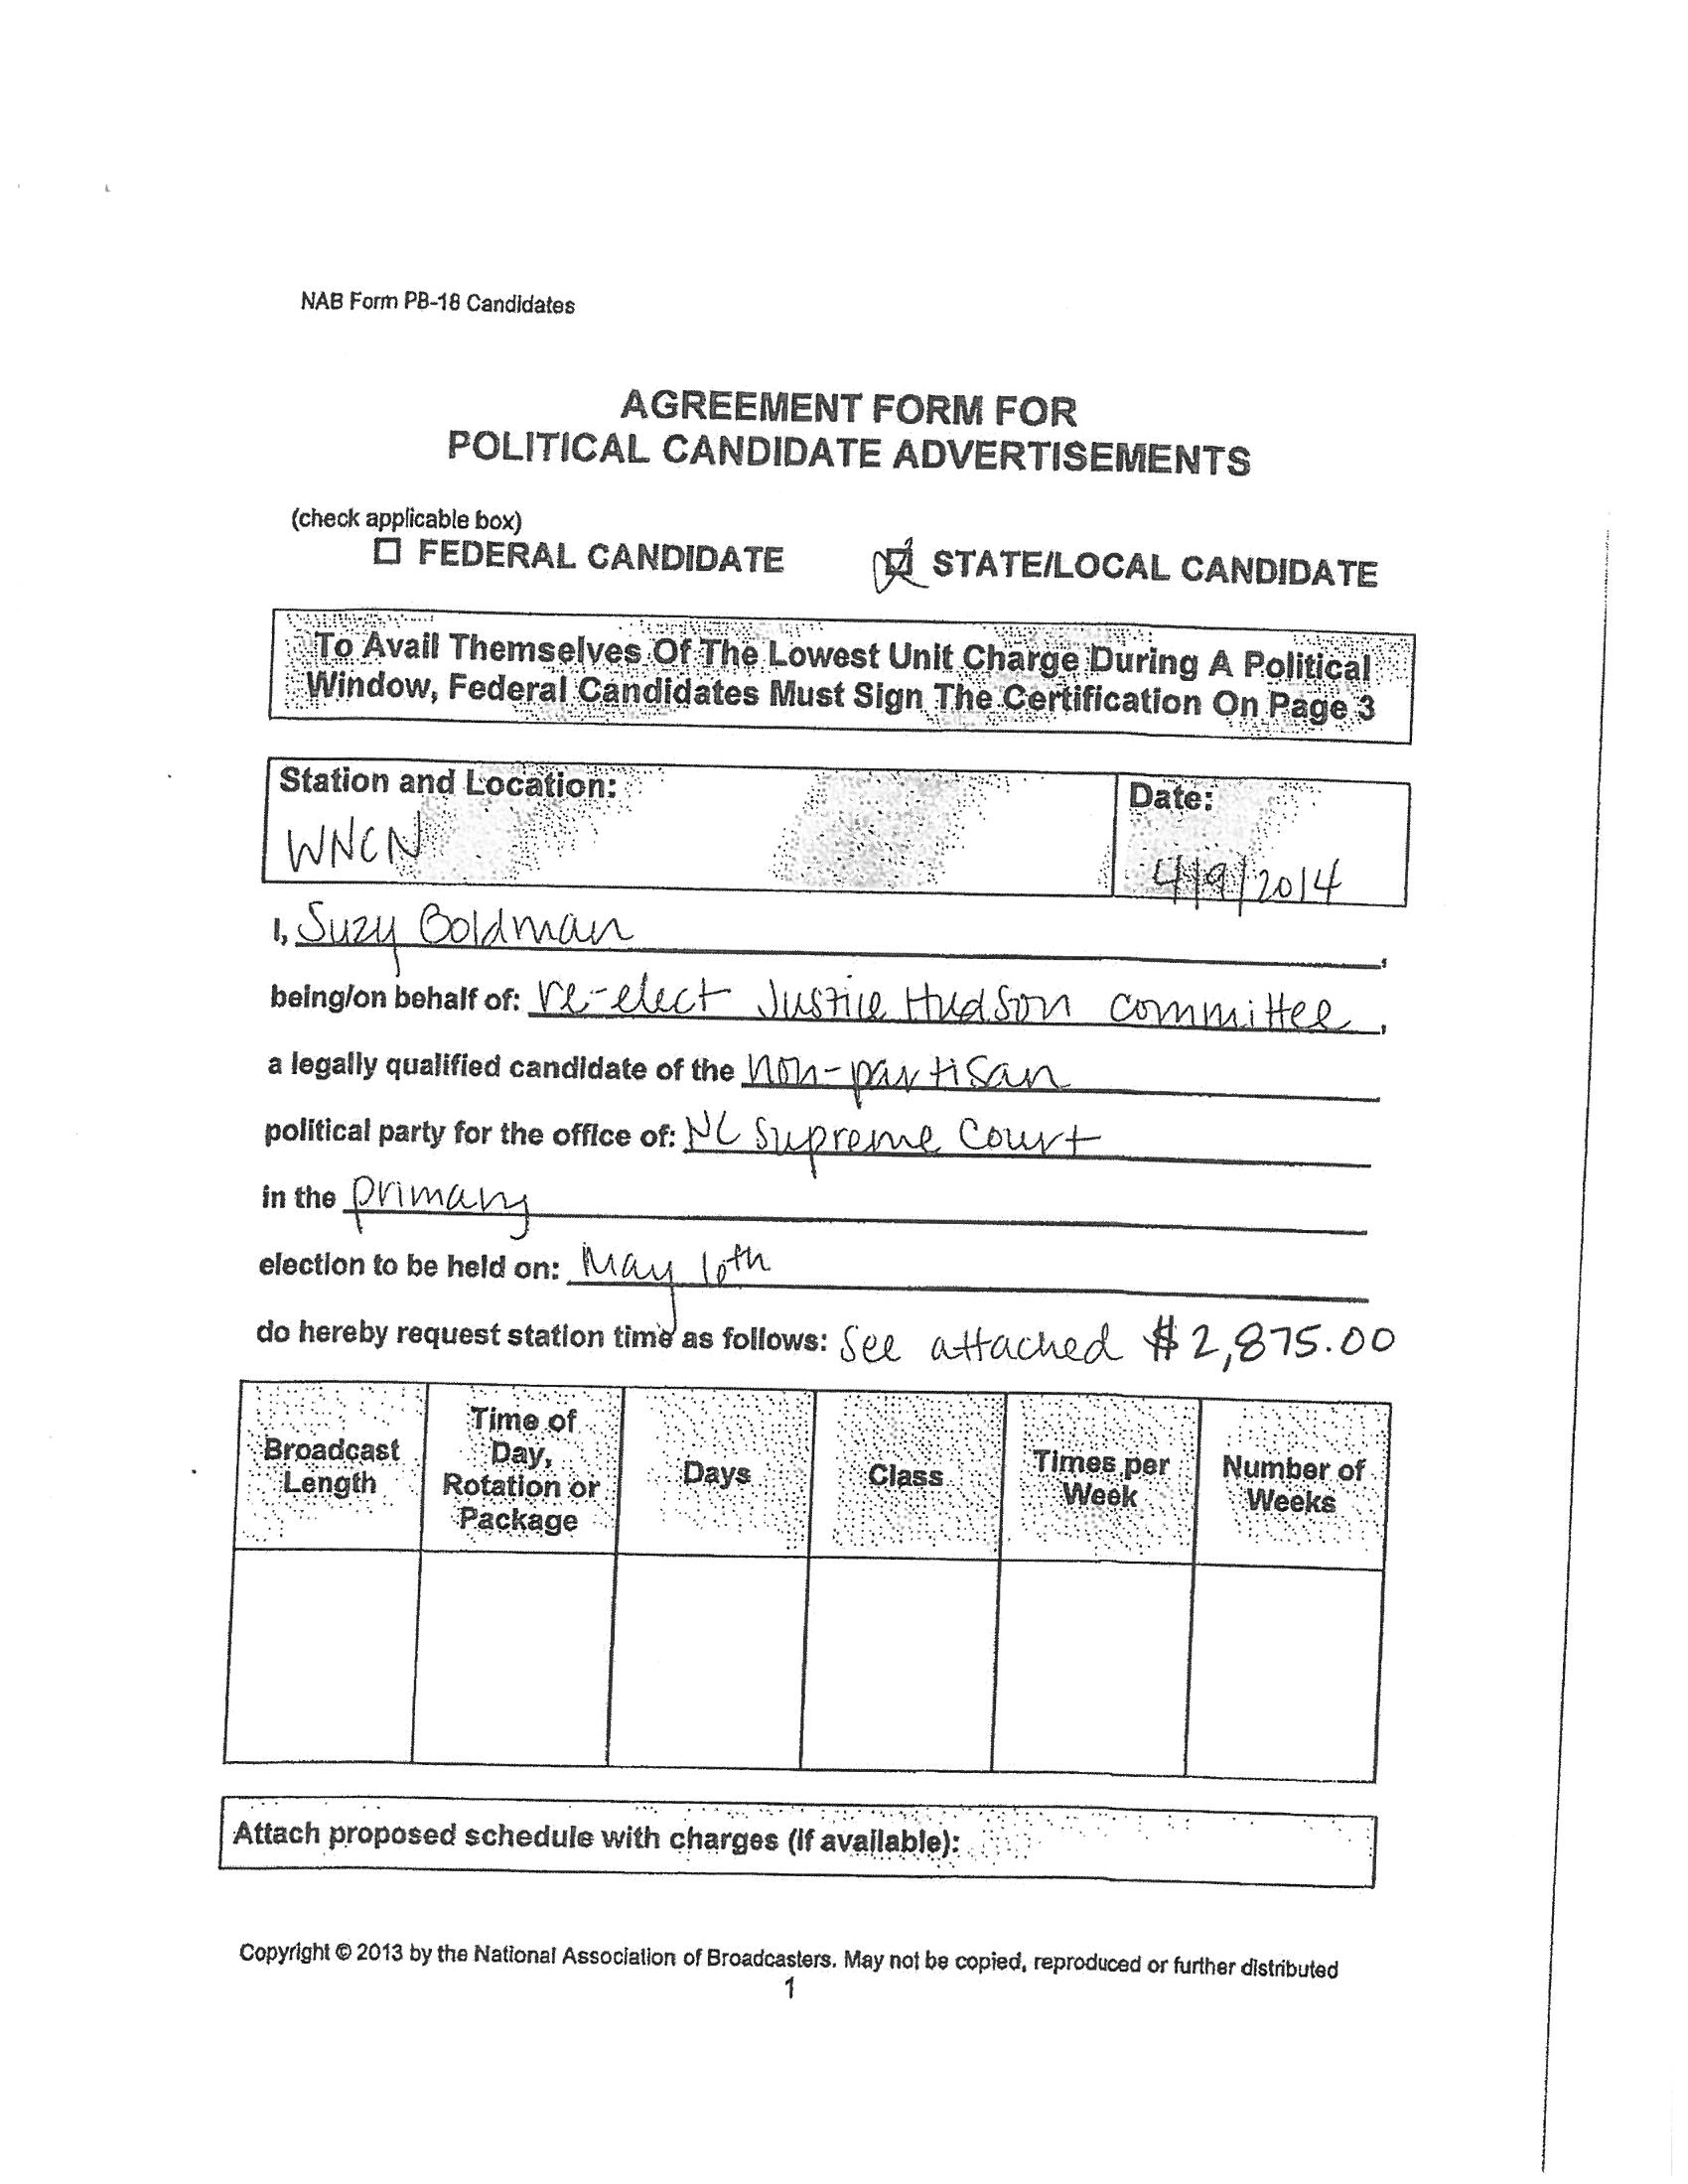 NAB Form PB-18 Candidates
AGREEMENT FORM FOR
POLITICAL CANDIDATE ADVERTISEMENTS
(check applicable box)
☐ FEDERAL CANDIDATE ☑ STATE/LOCAL CANDIDATE
To Avail Themselves Of The Lowest Unit Charge During A Political
Window, Federal Candidates Must Sign The Certification On Page 3
Station and Location: Date:
WNCN 4/9/2014
I, Suzy Boldman,
being/on behalf of: re-elect Justice Hudson committee,
a legally qualified candidate of the non-partisan
political party for the office of: NC Supreme Court
in the primary
election to be held on: May 10th
do hereby request station time as follows: See attached $2,875.00
Broadcast Length
Time of Day, Rotation or Package
Days
Class
Times per Week
Number of Weeks
Attach proposed schedule with charges (if available):
Copyright © 2013 by the National Association of Broadcasters. May not be copied, reproduced or further distributed
1